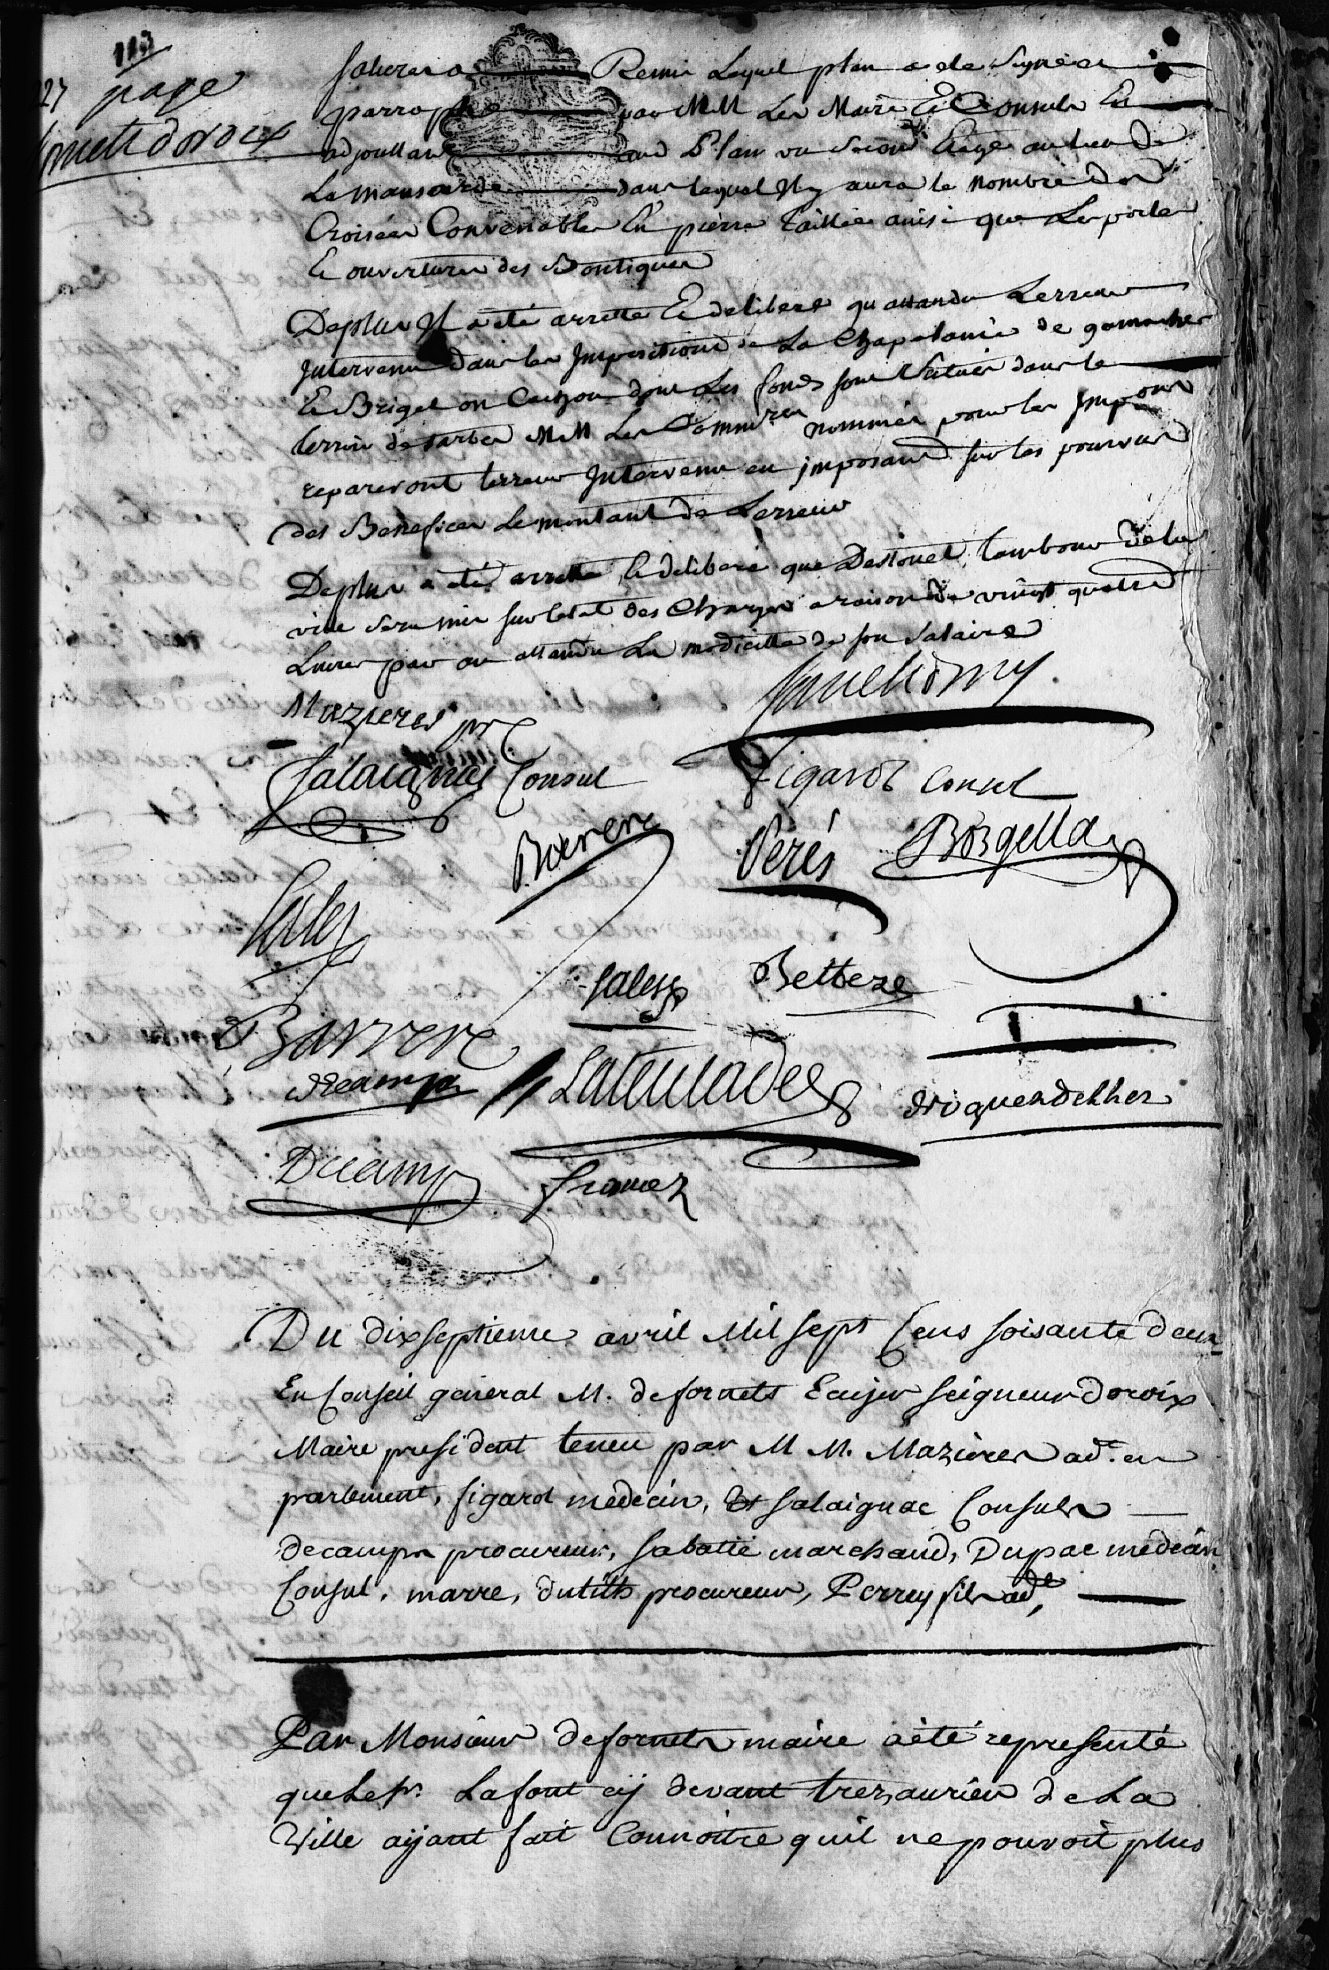 113
27 page
fornetts doroix
Remis Lequel plan a ete signé et
parraphé par MM Les Maire Et Consuls En
adjouttant aud Plan un second Etage au lieu de
La mansarde dans lequel Il y aura le nombre de
Croisées Convenables En pierre taillée ainsi que Les portes
Et ouvertures des Boutiques
De plus Il a été arretté Et deliberé qu attandu Lerreur
Intervenue dans les Impositions de La Chapelanie de gamaches
Et Briget ou Cauzou dont Les fonds sont situés dans le
terroir de tarbes MM Les Commres nommés pour les Impons
repareront lerreur Intervenue en imposant sur les pourvus
des Benefices Le montant de Lerreur
De plus a été arretté Et deliberé que Destouet tambour de la
ville sera mis sur letat des Charges a raison de vingt quatre
Livres par an attandu La modicitté de son salaire
Mazieres pr
Salaignac Consul
figarol Consul
Barere
Perés
Borgella
Sales
Betbeze
Barrere
decamps
Lateulade
Ducamp
Du dixseptieme avril Mil sept Cens soisante deux
En Conseil general M. defornets Ecuijer seigneur doroix
Maire president teneu par M M. Mazieres adt. en
parlement, figarol medecin, Et salaignac Consuls
decamps procureur, sabatié marchand, Dupac medecin
Consul, marre, dutilh procureur, Perrey fils adt,
Par Monsieur defornets maire a été representé
que Le sr. Lafont cij devant trezaurier de La
Ville aijant fait Connoitre quil ne pouvoit plus